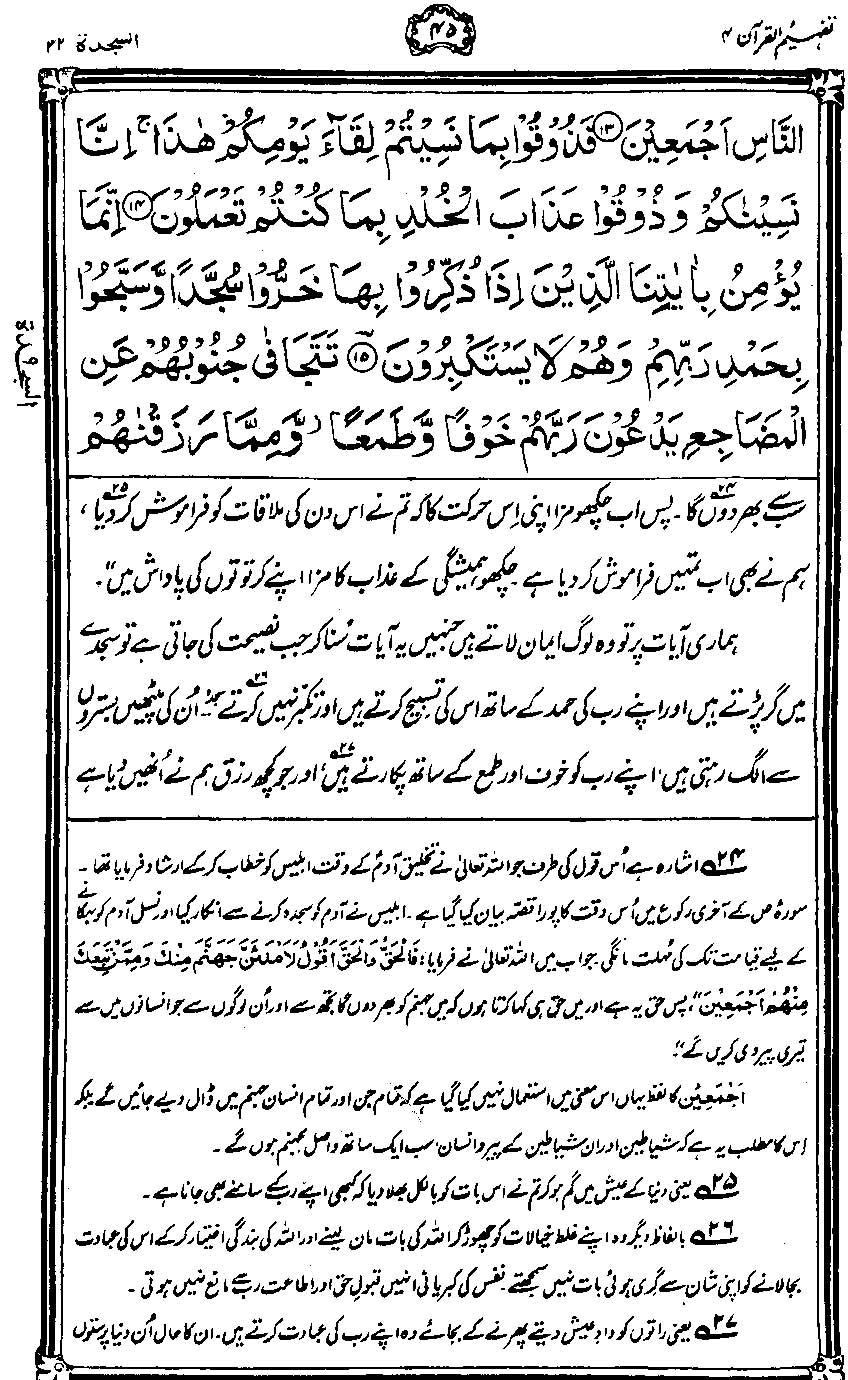 تفہیم القرآن ۴
۴۵
السجدۃ ۳۲
النَّاسِ اَجْمَعِيْنَ ﴿۱۳﴾ فَذُوْقُوْا بِمَا نَسِيْتُمْ لِقَآءَ يَوْمِكُمْ هٰذَا ۚ اِنَّا
نَسِيْنٰكُمْ وَذُوْقُوْا عَذَابَ الْخُلْدِ بِمَا كُنْتُمْ تَعْمَلُوْنَ ﴿۱۴﴾ اِنَّمَا
يُؤْمِنُ بِاٰيٰتِنَا الَّذِيْنَ اِذَا ذُكِّرُوْا بِهَا خَرُّوْا سُجَّدًا وَّسَبَّحُوْا
بِحَمْدِ رَبِّهِمْ وَهُمْ لَا يَسْتَكْبِرُوْنَ ﴿۱۵﴾ تَتَجَافٰى جُنُوْبُهُمْ عَنِ
الْمَضَاجِعِ يَدْعُوْنَ رَبَّهُمْ خَوْفًا وَّطَمَعًا ز وَّمِمَّا رَزَقْنٰهُمْ
السجدۃ
سب سے بھر دوں گا۲۴۔ پس اب چکھو مزا اپنی اِس حرکت کا کہ تم نے اس دن کی ملاقات کو فراموش کر دیا۲۵،
ہم نے بھی اب تمہیں فراموش کر دیا ہے۔ چکھو ہمیشگی کے عذاب کا مزا اپنے کرتوتوں کی پاداش میں"۔
ہماری آیات پر تو وہ لوگ ایمان لاتے ہیں جنہیں یہ آیات سُنا کر جب نصیحت کی جاتی ہے تو سجدے
میں گر پڑتے ہیں اور اپنے رب کی حمد کے ساتھ اس کی تسبیح کرتے ہیں اور تکبّر نہیں کرتے۲۶۔ اُن کی پیٹھیں بستروں
سے الگ رہتی ہیں، اپنے رب کو خوف اور طمع کے ساتھ پکارتے ہیں۲۷، اور جو کچھ رزق ہم نے اُنھیں دیا ہے
۲۴ اشارہ ہے اُس قول کی طرف جو اللہ تعالیٰ نے تخلیق آدمؑ کے وقت ابلیس کو خطاب کر کے ارشاد فرمایا تھا۔
سورۂ صٓ کے آخری رکوع میں اُس وقت کا پورا قصّہ بیان کیا گیا ہے۔ ابلیس نے آدم کو سجدہ کرنے سے انکار کیا اور نسل آدم کو بہکانے
کے لیے قیامت تک کی مُہلت مانگی۔ جواب میں اللہ تعالیٰ نے فرمایا: فَالْحَقُّ وَالْحَقَّ اَقُوْلُ لَاَمْلَئَنَّ جَهَنَّمَ مِنْكَ وَمِمَّنْ تَبِعَكَ
مِنْهُمْ اَجْمَعِيْنَ "پس حق یہ ہے اور میں حق ہی کہا کرتا ہوں کہ میں جہنم کو بھر دوں گا تجھ سے اور اُن لوگوں سے جو انسانوں میں سے
تیری پیروی کریں گے"۔
اَجْمَعِيْن کا لفظ یہاں اس معنی میں استعمال نہیں کیا گیا ہے کہ تمام جن اور تمام انسان جہنم میں ڈال دیے جائیں گے بلکہ
اس کا مطلب یہ ہے کہ شیاطین اور ان شیاطین کے پیرو انسان سب ایک ساتھ واصل بجہنم ہوں گے۔
۲۵ یعنی دنیا کے عیش میں گم ہو کر تم نے اس بات کو بالکل بھلا دیا کہ کبھی اپنے رب کے سامنے بھی جانا ہے۔
۲۶ بالفاظ دیگر وہ اپنے غلط خیالات کو چھوڑ کر اللہ کی بات مان لینے اور اللہ کی بندگی اختیار کر کے اس کی عبادت
بجا لانے کو اپنی شان سے گری ہوئی بات نہیں سمجھتے۔ نفس کی کبریائی انہیں قبولِ حق اور اطاعت رب سے مانع نہیں ہوتی۔
۲۷ یعنی راتوں کو دادِ عیش دیتے پھرنے کے بجائے وہ اپنے رب کی عبادت کرتے ہیں۔ ان کا حال اُن دنیا پرستوں